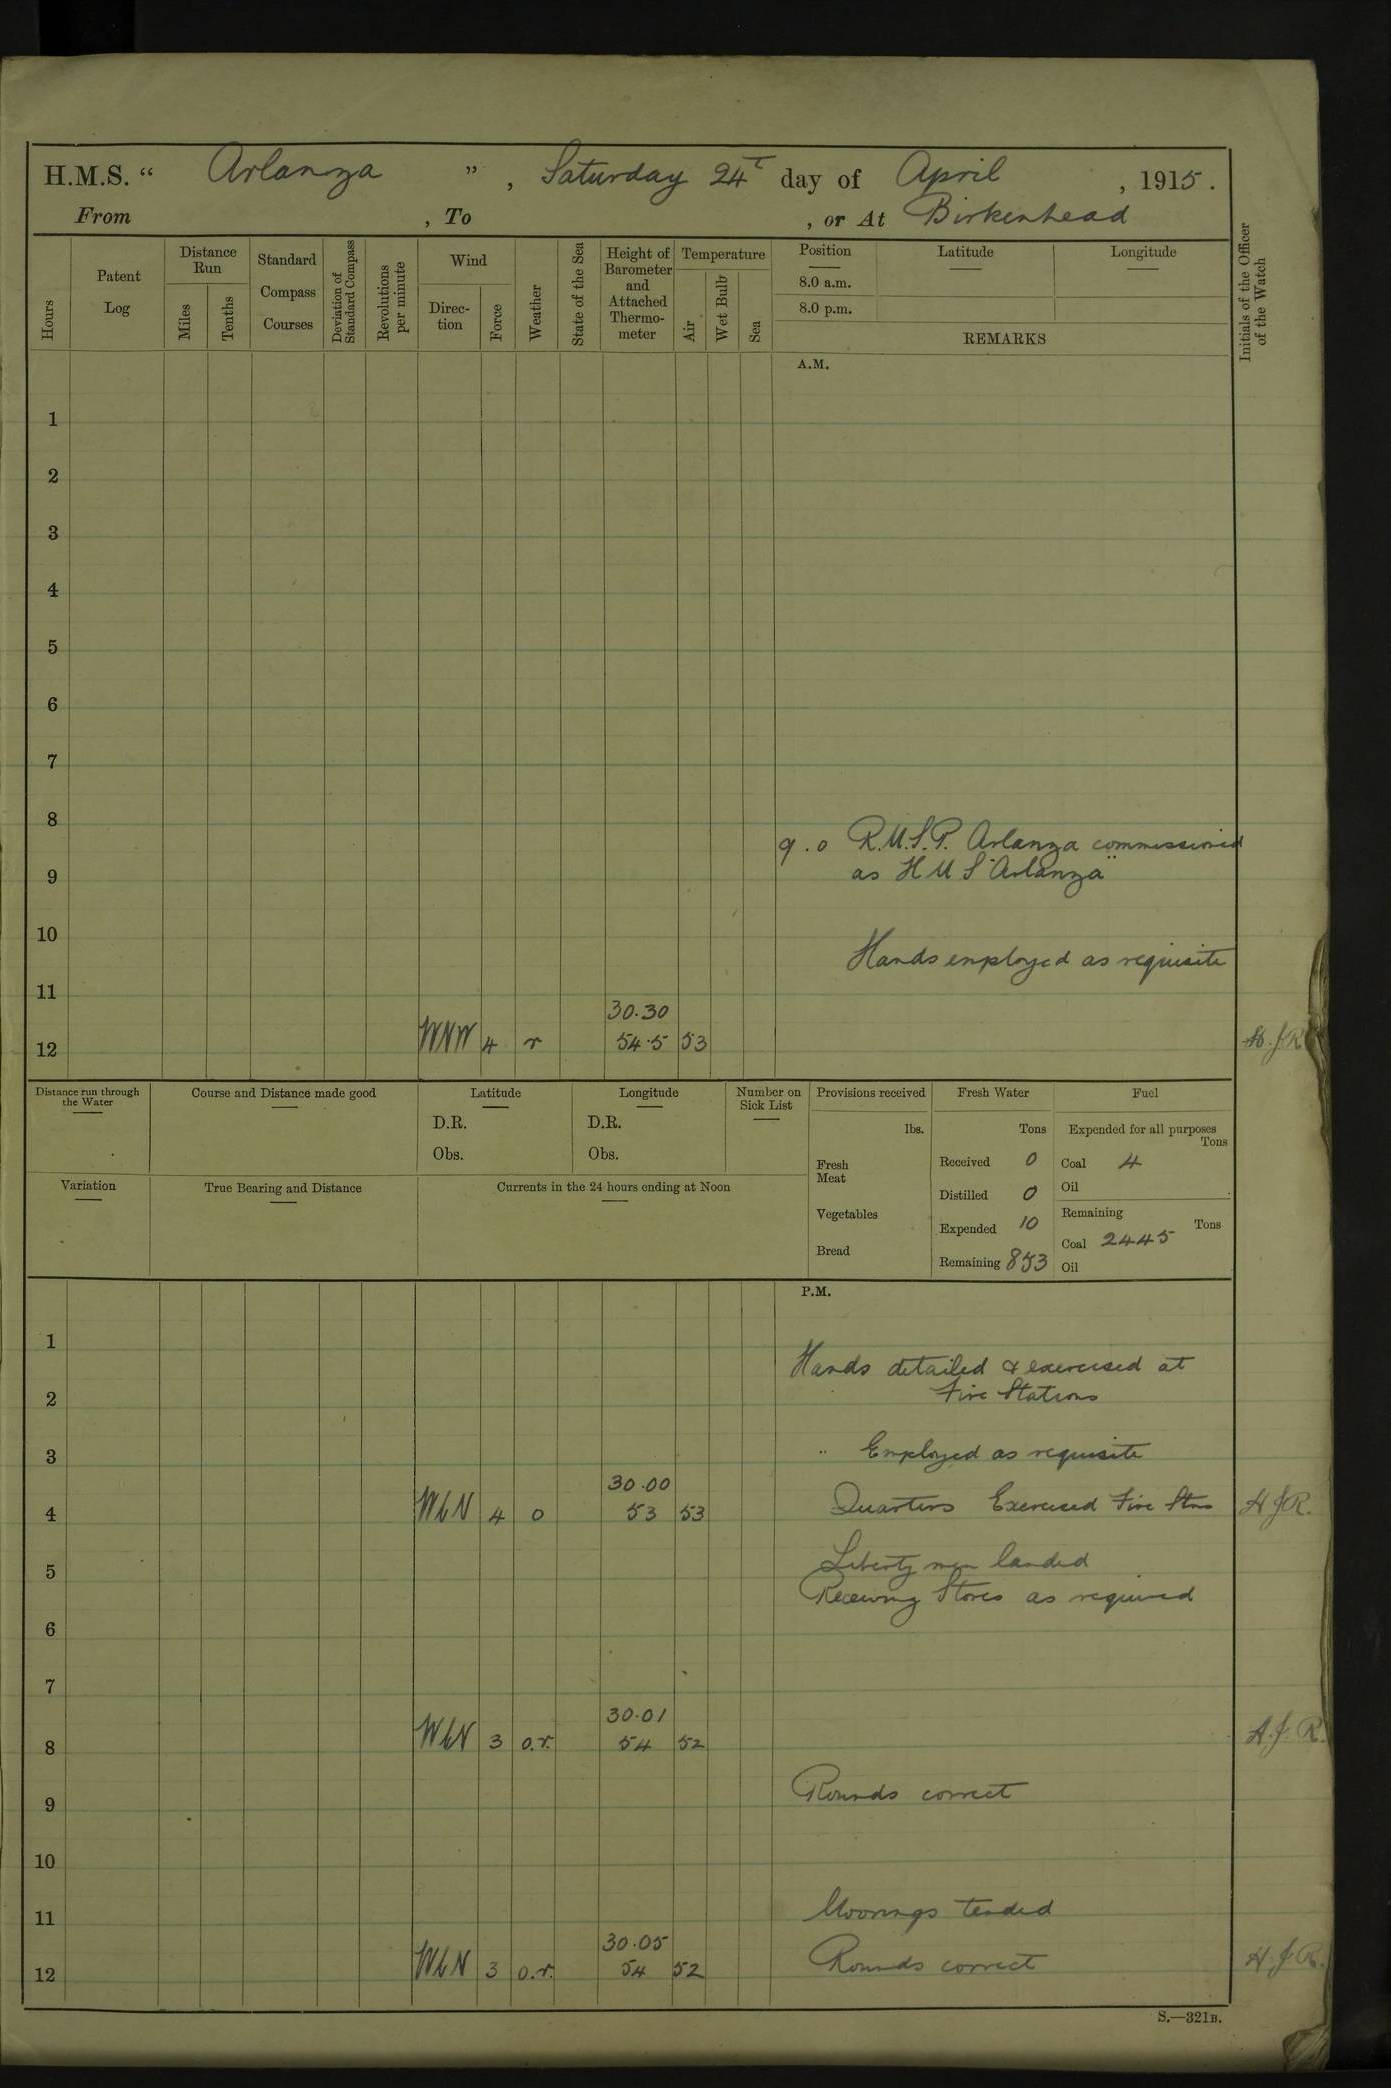 H.M.S. " Arlanza ", Saturday 24th day of April, 1915.
From , To , or At Birkenhead
Hours
Patent Log
Distance Run
Miles
Tenths
Standard Compass Courses
Deviation of Standard Compass
Revolutions per minute
Wind
Direction
Force
Weather
State of the Sea
Height of Barometer and Attached Thermometer
Temperature
Air
Wet Bulb
Sea
Position Latitude Longitude
8.0 a.m.
8.0 p.m.
REMARKS
Initials of the Officer of the Watch
A.M.
1
2
3
4
5
6
7
8
9.0 R.M.S.P. Arlanza commissioned
9 as H M S "Arlanza"
10
Hands employed as requisite
11
30.30
12 WNW 4 r 54.5 53 H.J.R.
Distance run through the Water
Course and Distance made good
Latitude
D.R.
Obs.
Longitude
D.R.
Obs.
Number on Sick List
Provisions received
lbs.
Fresh Meat
Vegetables
Bread
Fresh Water
Tons
Received 0
Distilled 0
Expended 10
Remaining 853
Fuel
Expended for all purposes
Tons
Coal 4
Oil
Remaining
Tons
Coal 2445
Oil
Variation
True Bearing and Distance
Currents in the 24 hours ending at Noon
P.M.
1
Hands detailed & exercised at
2 Fire Stations
3 " Employed as requisite
30.00
4 WbN 4 o 53 53 Quarters Exercised Fire Stns H J R.
Liberty men landed
5
Receiving Stores as required
6
7
30.01
8 WbN 3 o.r. 54 52 H.J.R.
Rounds correct
9
10
11 Moorings tended
30.05
12 WbN 3 o.r. 54 52 Rounds correct H J R.
S.—321B.